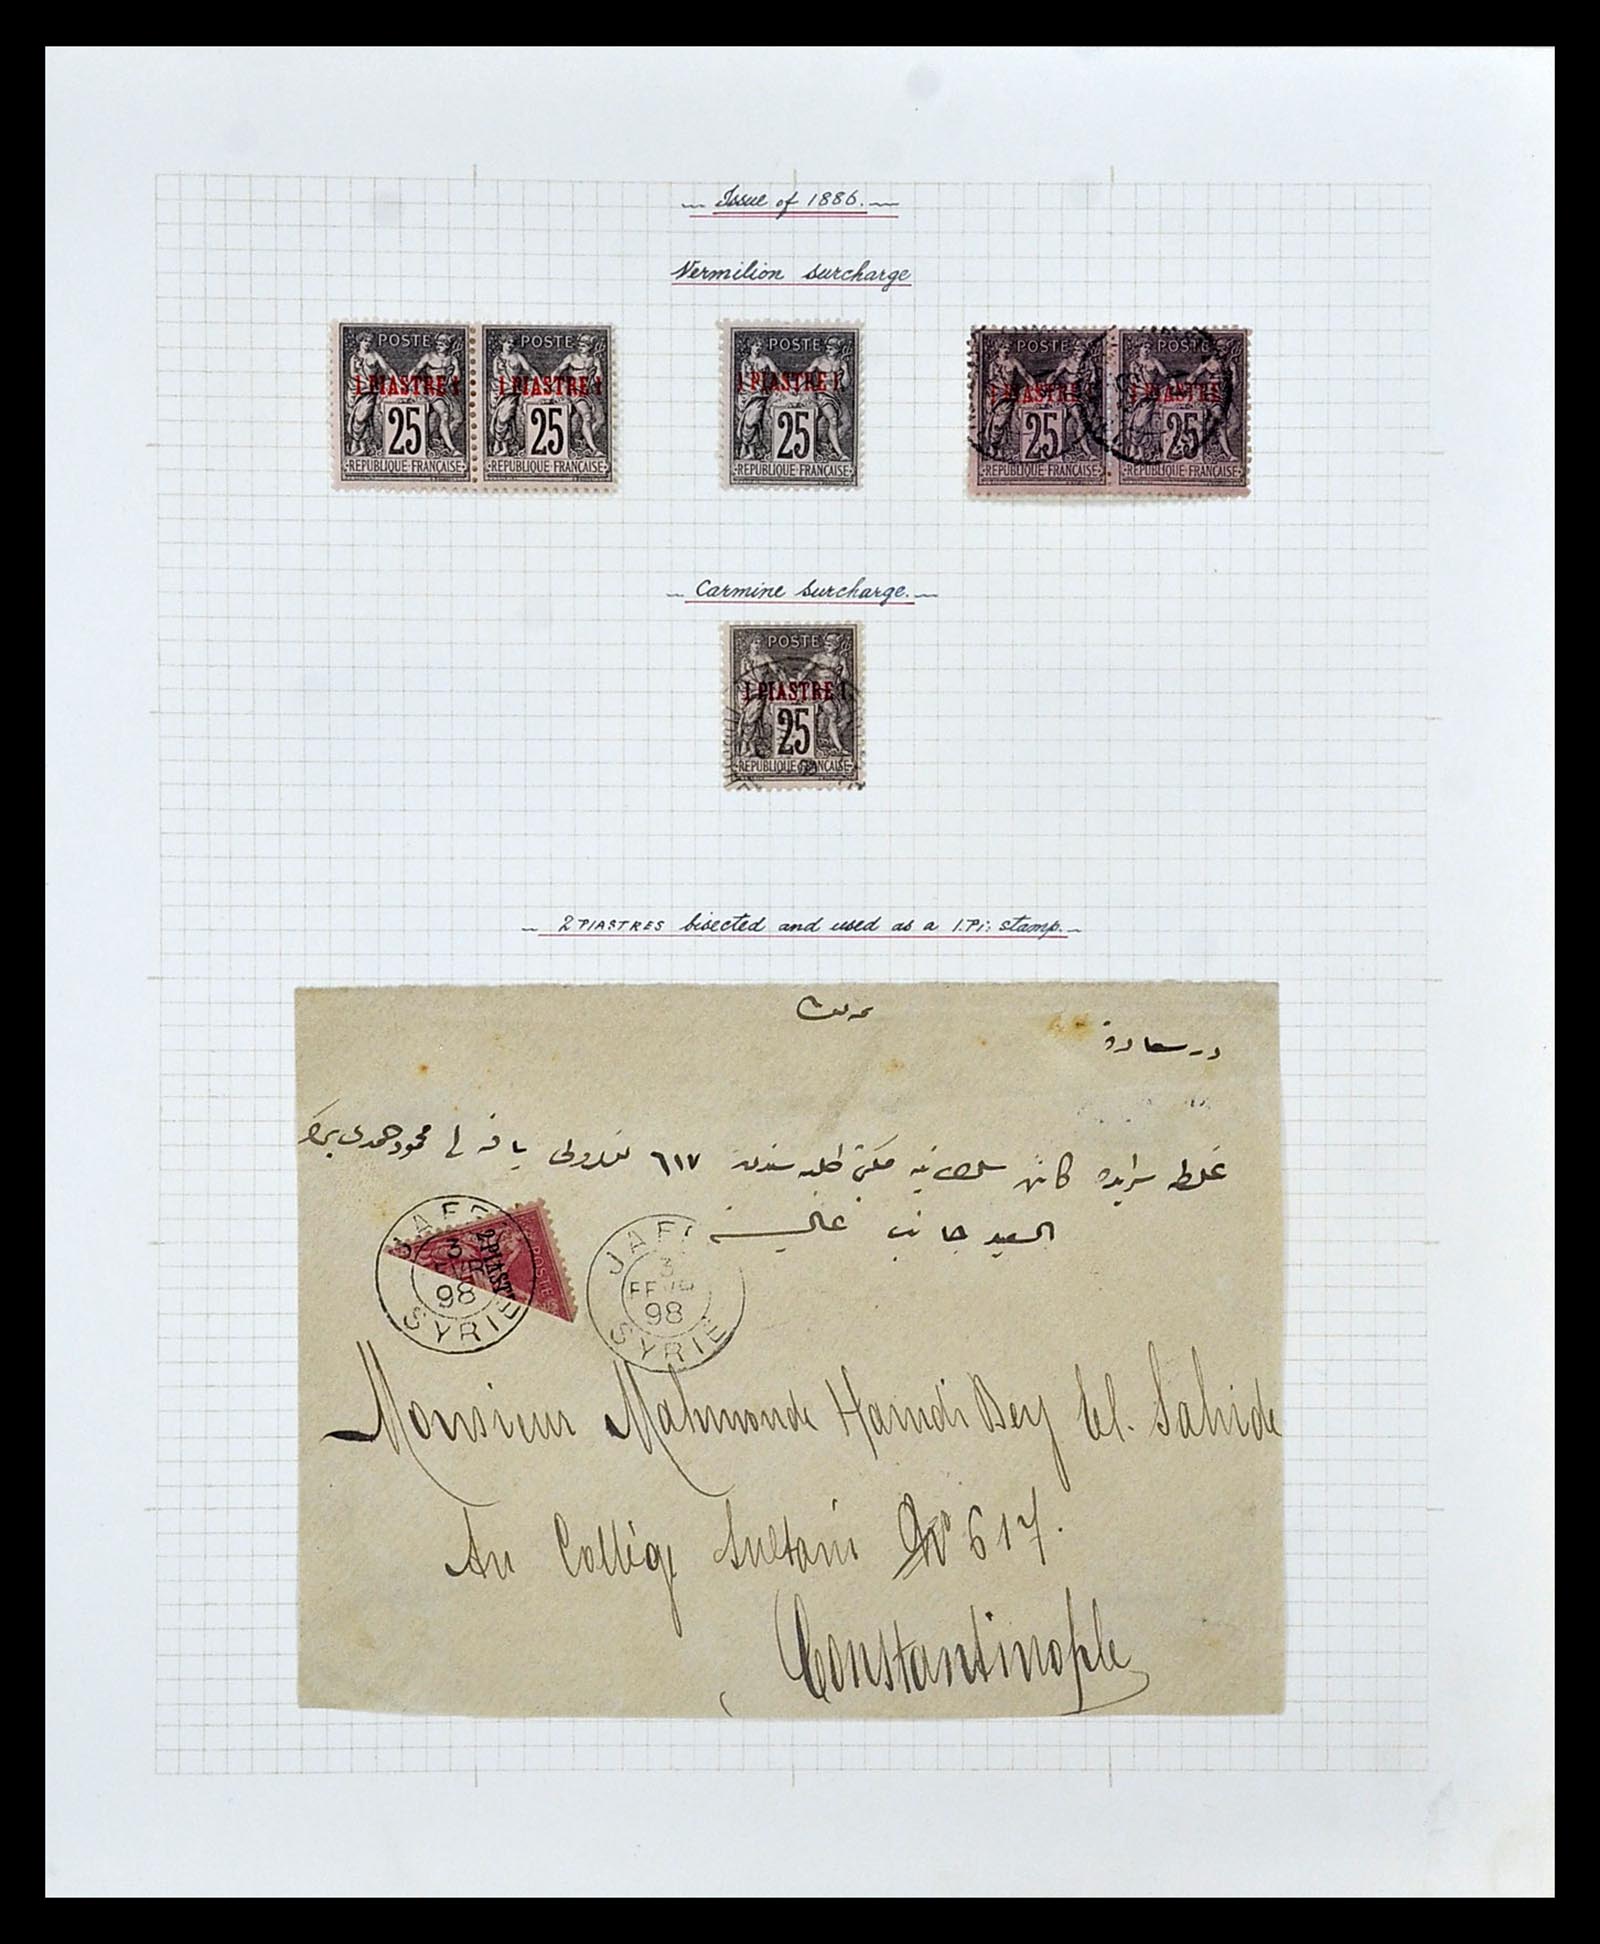 Issue of 1886.
Vermilion surcharge
POSTE POSTE POSTE POSTE POSTE
1 PIASTRE 1 1 PIASTRE 1 1 PIASTRE 1 1 PIASTRE 1 1 PIASTRE
25 25 25 25 25
REPUBLIQUE FRANÇAISE REPUBLIQUE FRANÇAISE REPUBLIQUE FRANÇAISE REPUBLIQUE FRANÇAISE REPUBLIQUE FRANÇAISE
Carmine surcharge.
POSTE
1 PIASTRE 1
25
REPUBLIQUE FRANÇAISE
2 PIASTRES bisected and used as a 1.Pi: stamp.
در سعادة
غلطه سراينده ٦١٧ يافه لى محمود حمدى
السعيد جانب
2 PIAST
POSTE
JAF
3
98
SYRIE
JAF
3
FEVR
98
SYRIE
Monsieur Mahmonde Hamdi Bey El. Sahide
Au Collége Sultani No 617.
Constantinople